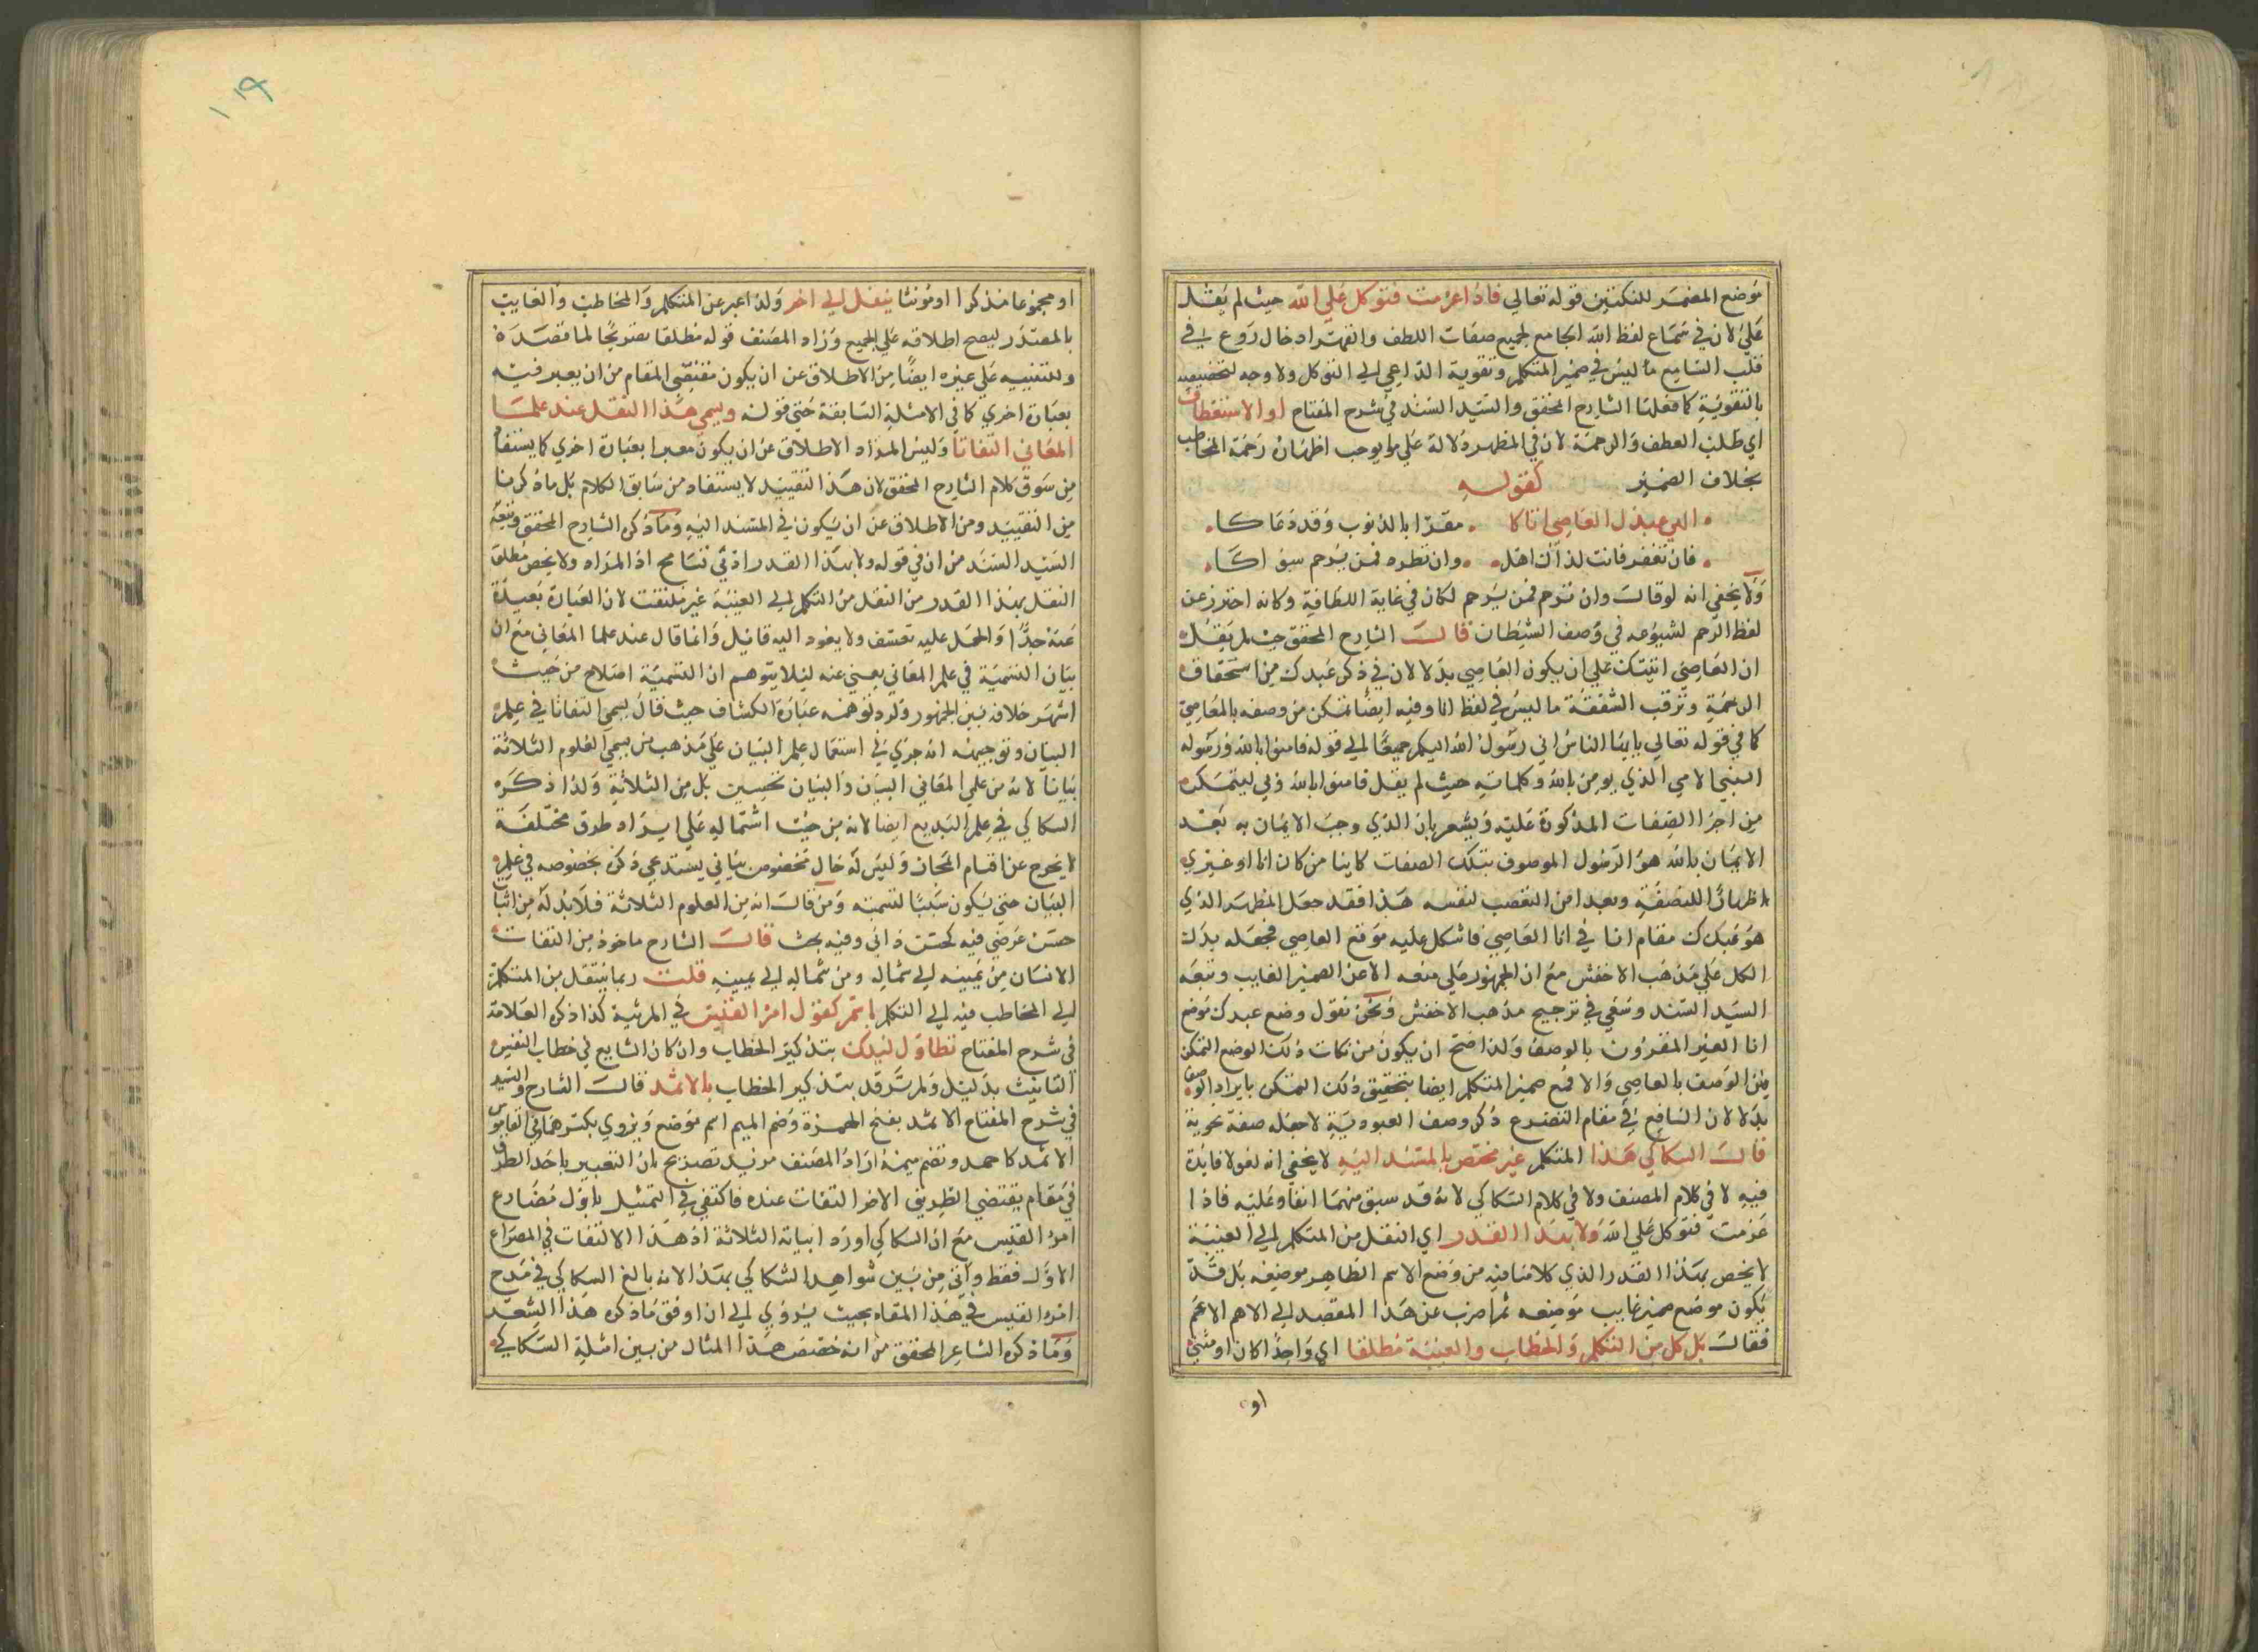 موضع المضمر للنكتتين قوله تعالي فاذا عزمت فتوكل علي الله حيث لم يقل
علي لان في سماع لفظ الله الجامع لجميع صفات اللطف والقهر ادخال روع في
قلب السامع ما ليس في ضمير المتكلم وتقوية الداعي الي التوكل ولا وجه لتخصيصه
بالتقوية كما فعله الشارح المحقق والسيد السند في شرح المفتاح او الاستعطاف
اي طلب العطف والرحمة لان في المظهر دلالة علي ما يوجب اظهار رحمة المخاطب
بخلاف الضمير كقوله
الهي عبدك العاصي اتاكا مقرا بالذنوب وقد دعاكا
فان تغفر فانت لذاك اهل وان تطرد فمن يرحم سواكا
ولا يخفي انه لو قال وان ترحم فمن يرحم لكان في غاية اللطافة وكانه احترز عن
لفظ الرحم لشيوعه في وصف الشيطان قال الشارح المحقق حيث لم يقل
انا العاصي اتيتك علي ان يكون العاصي بدلا لان في ذكر عبدك من استحقاق
الرحمة وترقب الشفقة ما ليس في لفظ انا وفيه ايضا تمكن من وصفه بالعاصي
كما في قوله تعالي يايها الناس اني رسول الله اليكم جميعا الي قوله فامنوا بالله ورسوله
النبي الامي الذي يومن بالله وكلماته حيث لم يقل فامنوا بالله وبي ليتمكن
من اجرا الصفات المذكورة عليه ويشعر بان الذي وجب الايمان به بعد
الايمان بالله هو الرسول الموصوف بتلك الصفات كاينا من كان انا او غيري
اظهارا للنصفة وبعدا من التعصب لنفسه هذا فقد جعل المظهر الذي
هو عبدك مقام انا في انا العاصي فاشكل عليه موقع العاصي فجعله بدل
الكل علي مذهب الاخفش مع ان الجمهور علي منعه الا عن الضمير الغايب وتبعه
السيد السند وسعي في ترجيح مذهب الاخفش ونحن نقول وضع عبدك موضع
انا الغير المقرون بالوصف ولذا صح ان يكون من نكات ذلك الوضع التمكن
من الوصف بالعاصي والا فمع ضمير المتكلم ايضا يتحقيق ذلك التمكن بايراد الوصف
بدلا لان النافع في مقام التضرع ذكر وصف العبودية لا جعله صفة نحوية
قال السكاكي هذا المتكلم غير مختص بالمسند اليه لا يخفي انه لغو لا فايدة
فيه لا في كلام المصنف ولا في كلام السكاكي لانه قد سبق منهما انفا وعليه فاذا
عزمت فتوكل علي الله ولا بهذا القدر اي النقل من المتكلم الي الغيبة
لا يختص بهذا القدر الذي كلامنا فيه من وضع الاسم الظاهر موضعه بل قد
يكون موضع ضمير غايب موضعه ثم اضرب عن هذا المقصد الي الاهم الاعم
فقال بل كل من التكلم والخطاب والغيبة مطلقا اي واحدا كان او مثني
او
١١٩
او مجموعا مذكرا او مونثا ينقل الي اخر ولذا عبر عن المتكلم والمخاطب والغايب
بالمصدر ليصح اطلاقه علي الجميع وزاد المصنف قوله مطلقا تصريحا لما قصده
وللتنبيه علي غيره ايضا من الاطلاق عن ان يكون مقتضي المقام من ان يعبر فيه
بعبارة اخري كما في الامثلة السابقة حتي قوله ويسمي هذا النقل عند علما
المعاني التفاتا وليس المراد الاطلاق عن ان يكون معبرا بعبارة اخري كما يستفاد
من سوق كلام الشارح المحقق لان هذا التقييد لا يستفاد من سابق الكلام بل ما ذكرنا
من التقييد ومن الاطلاق عن ان يكون في المسند اليه وما ذكره الشارح المحقق وتبعه
السيد السند من ان في قوله ولا بهذا القدر ادني تسامح اذ المراد ولا يختص مطلق
النقل بهذا القدر من النقل من التكلم الي الغيبة غير ملتفت لان العبارة بعيدة
عنه جدا والحمل عليه تعسف ولا يعود اليه فايدة وانما قال عند علما المعاني مع ان
بيان التسمية في علم المعاني يغني عنه ليلا يتوهم ان التسمية اصلاح من حيث
اشهر خلافه بين الجمهور ولدفع توهمه عبارة الكشاف حيث قال يسمي التفاتا في علم
البيان وتوجيهه انه جري في استعمال علم البيان علي مذهب من يسمي العلوم الثلاثة
بيانا لانه من علمي المعاني البيان والبيان تحسين بل من الثلاثة ولذا ذكره
السكاكي في علم البديع ايضا لانه من حيث اشتماله علي ايراد طرق مختلفة
لا يخرج عن اقسام المجاز وليس له حال مخصوص بياني يستدعي ذكره بخصوصه في علم
البيان حتي يكون سببا لتسميته ومن قال انه من العلوم الثلاثة فلا بد له من اثبات
حسن عرضي فيه لحسن ذاتي وفيه بحث قال الشارح ماخوذ من التفات
الانسان من يمينه الي شماله ومن شماله الي يمينه قلت ربما ينتقل من المتكلم
الي المخاطب فيه الي التكلم باثم كقول امرا القيس في المرثية كذا ذكره العلامة
في شرح المفتاح تطاول ليلك بتذكير الخطاب وان كان الشايع في خطاب النفس
التانيث بدليل ولم ترقد بتذكير الخطاب بالاثمد قال الشارح والسيد
في شرح المفتاح الاثمد بفتح الهمزة وضم الميم اسم موضع ويروي بكسرهما وفي القاموس
الاثمد كاحمد وتضم ميمه اراد المصنف مزيد تصريح بان التعبير باحد الطرق
في مقام يقتضي الطريق الاخر التفات عنده فاكتفي في التمثيل باول مصارع
امرء القيس مع ان السكاكي اورد ابياته الثلاثة اذ هذا الالتفات في المصراع
الاول فقط واتي من بين شواهد السكاكي بهذا لانه بالغ السكاكي في مدح
امرء القيس في هذا المقام بحيث يروي الي ان اوفق ما ذكره هذا الشعر
وما ذكره الشاعر المحقق من انه خصص هذا المثال من بين امثلة السكاكي